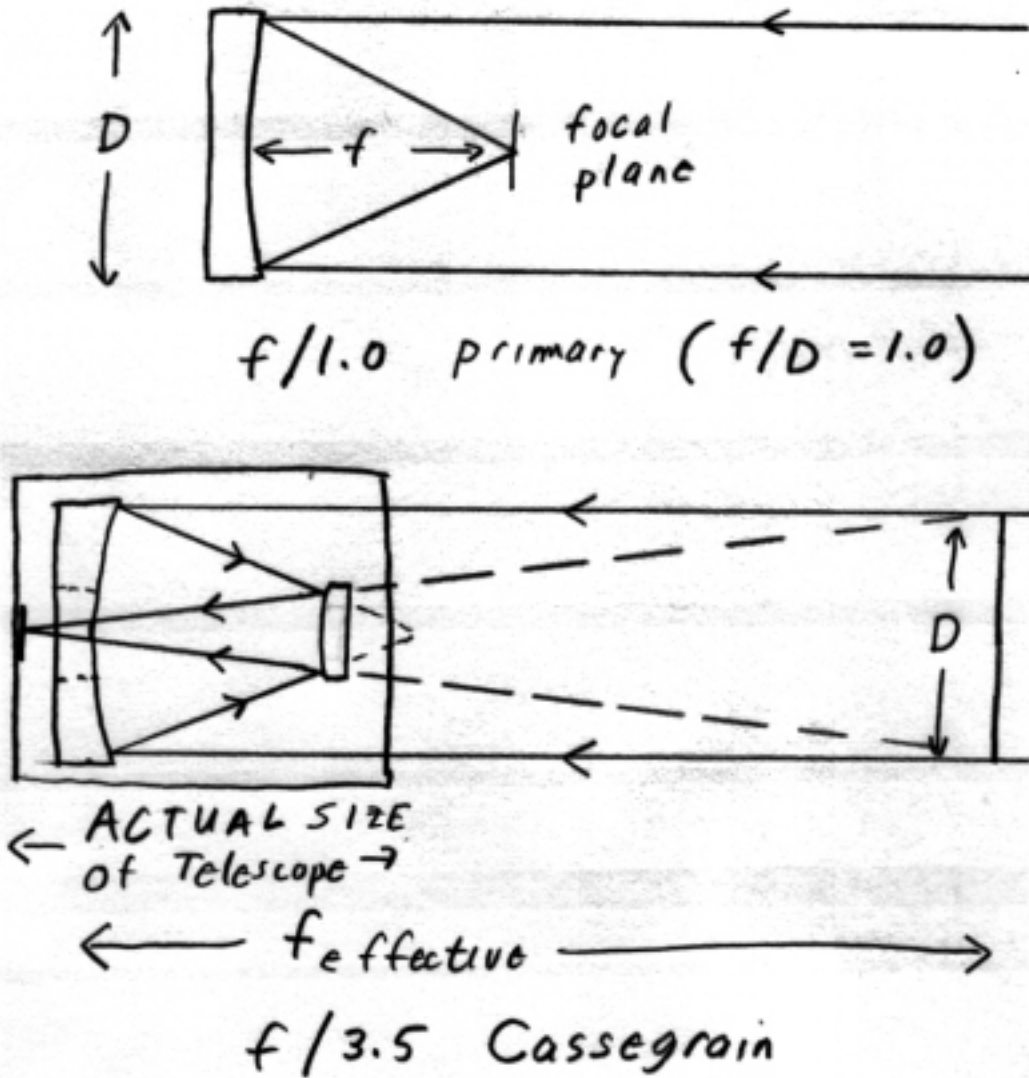 D
f
focal
plane
f/1.0 primary (f/D = 1.0)
D
ACTUAL SIZE
of Telescope
f effective
f/3.5 Cassegrain